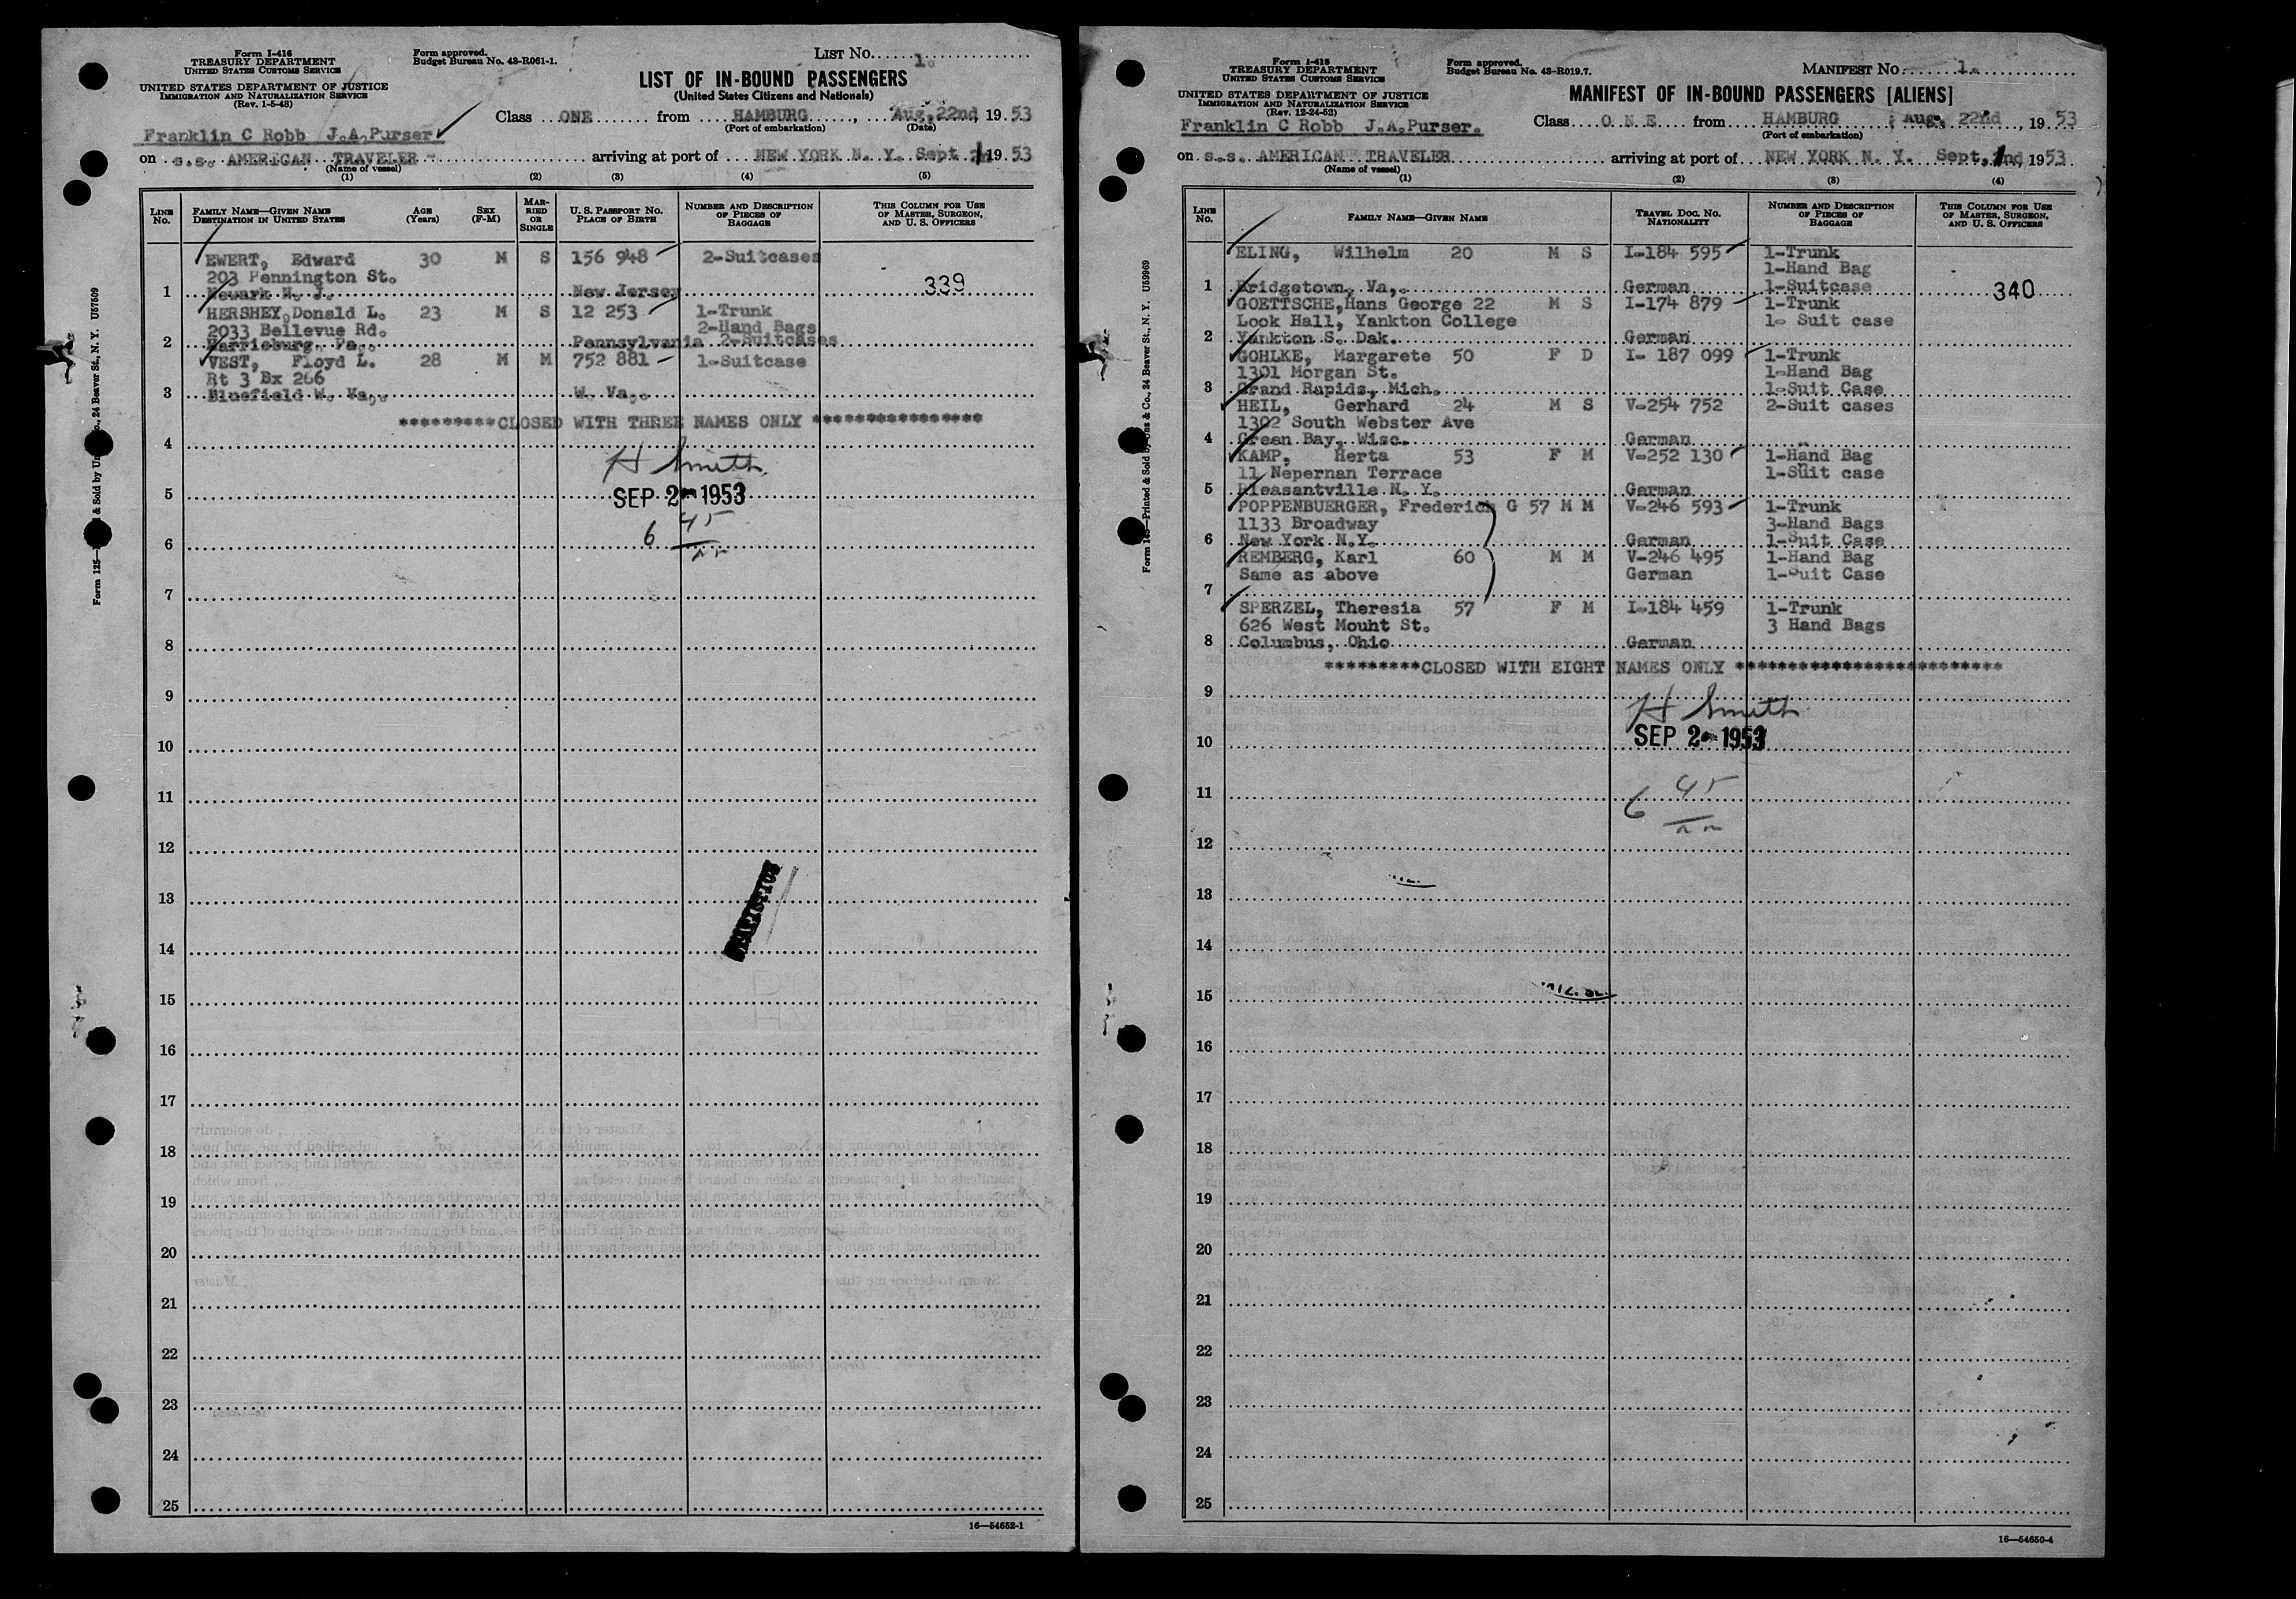 Form I-416
TREASURY DEPARTMENT
UNITED STATES CUSTOMS SERVICE
UNITED STATES DEPARTMENT OF JUSTICE
IMMIGRATION AND NATURALIZATION SERVICE
(Rev. 1-5-48)
Form approved.
Budget Bureau No. 43-R061-1.
LIST NO. 1.
LIST OF IN-BOUND PASSENGERS
(United States Citizens and Nationals)
Class ONE from HAMBURG, Aug, 22nd, 1953
(Port of embarkation) (Date)
Franklin C Robb J.A.Purser
on s.s. AMERICAN TRAVELER arriving at port of NEW YORK N. Y. Sept. 1953
(Name of vessel)
(1) (2) (3) (4) (5)
LINE NO.
FAMILY NAME—GIVEN NAME
DESTINATION IN UNITED STATES
AGE (Years)
SEX (F-M)
MARRIED OR SINGLE
U. S. PASSPORT NO.
PLACE OF BIRTH
NUMBER AND DESCRIPTION OF PIECES OF BAGGAGE
THIS COLUMN FOR USE OF MASTER, SURGEON, AND U. S. OFFICERS
EWERT, Edward 30 M S 156 948 2-Suitcases
203 Pennington St.
1 Newark N. J. New Jersey 339
HERSHEY,Donald L. 23 M S 12 253 1-Trunk
2033 Bellevue Rd. 2-Hand Bags
2 Harrisburg, Pa,. Pennsylvania 2-Suitcases
VEST, Floyd L. 28 M M 752 881 1-Suitcase
Rt 3 Bx 266
3 Bluefield W. Va,. W. Va,.
*********CLOSED WITH THREE NAMES ONLY ****************
4
H Smith
5 SEP 2 1953
6 6 45
7
8
9
10
11
12
13
14
15
16
17
18
19
20
21
22
23
24
25
16—54652-1
Form I-415
TREASURY DEPARTMENT
UNITED STATES CUSTOMS SERVICE
UNITED STATES DEPARTMENT OF JUSTICE
IMMIGRATION AND NATURALIZATION SERVICE
(Rev. 12-24-52)
Form approved.
Budget Bureau No. 43-R019.7.
MANIFEST NO. 1.
MANIFEST OF IN-BOUND PASSENGERS [ALIENS]
Class O N E from HAMBURG, Aug, 22nd, 1953
(Port of embarkation)
Franklin C Robb J.A.Purser.
on s.s. AMERICAN TRAVELER arriving at port of NEW YORK N. Y. Sept, 1953
(Name of vessel)
(1) (2) (3) (4)
LINE NO.
FAMILY NAME—GIVEN NAME
TRAVEL DOC. NO.
NATIONALITY
NUMBER AND DESCRIPTION OF PIECES OF BAGGAGE
THIS COLUMN FOR USE OF MASTER, SURGEON, AND U. S. OFFICERS
ELING, Wilhelm 20 M S I-184 595 1-Trunk
1-Hand Bag
1 Bridgetown, Va,. German 1-Suitcase 340
GOETTSCHE,Hans George 22 M S I-174 879 1-Trunk
Look Hall, Yankton College 1- Suit case
2 Yankton S. Dak. German
GOHLKE, Margarete 50 F D I- 187 099 1-Trunk
1301 Morgan St. 1-Hand Bag
3 Grand Rapids, Mich. 1-Suit Case
HEIL, Gerhard 24 M S V-254 752 2-Suit cases
1302 South Webster Ave
4 Green Bay, Wisc. German
KAMP, Herta 53 F M V-252 130 1-Hand Bag
11 Nepernan Terrace 1-Suit case
5 Pleasantville N. Y. German
POPPENBUERGER, Frederich G 57 M M V-246 593 1-Trunk
1133 Broadway 3-Hand Bags
6 New York N.Y. German 1-Suit Case
REMBERG, Karl 60 M M V-246 495 1-Hand Bag
Same as above German 1-Suit Case
7
SPERZEL, Theresia 57 F M I-184 459 1-Trunk
626 West Mouht St. 3 Hand Bags
8 Columbus, Ohio German
*********CLOSED WITH EIGHT NAMES ONLY *************************
9
H Smith
10 SEP 2 1953
11 6 45
12
13
14
15
16
17
18
19
20
21
22
23
24
25
16—54650-4